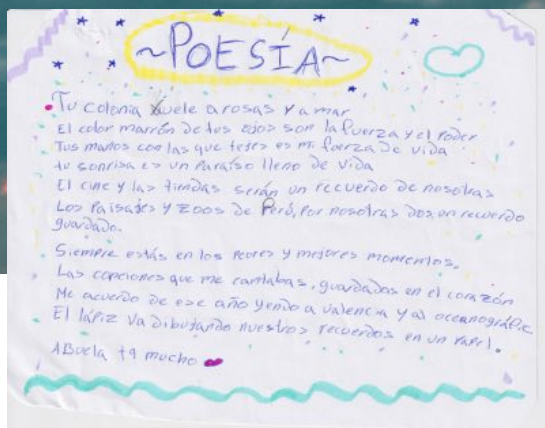 ~POESÍA~
Tu colonia huele a rosas y a mar
El color marrón de tus ojos son la fuerza y el poder
Tus manos con las que tejes es mi fuerza de vida
tu sonrisa es un Paraíso lleno de vida
El cine y las tiendas serán un recuerdo de nosotras
Los Paisajes y zoos de Perú, Por nosotras dos un recuerdo
guardado.
Siempre estás en los peores y mejores momentos.
Las canciones que me cantabas, guardadas en el corazón
Me acuerdo de ese año yendo a valencia y al oceanográfic
El lápiz va dibujando nuestros recuerdos en un papel.
ABuela tq mucho